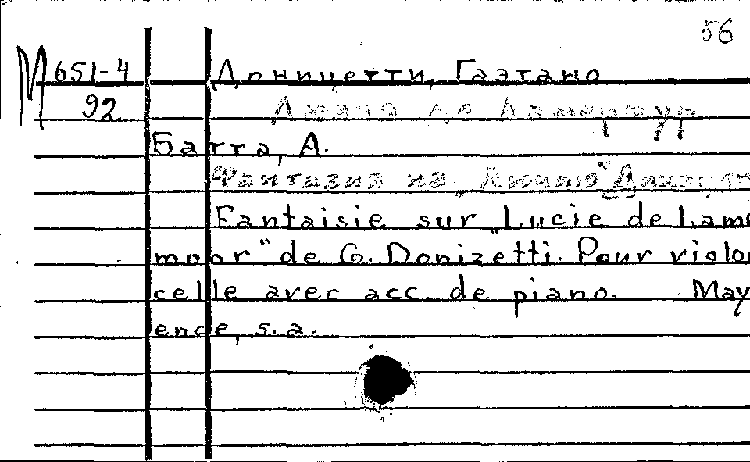 56
М 651-4
92
Доницетти, Гаэтано
Лючия де Ламермур
Батта, А.
Фантазия на "Лючию
Fantaisie sur „Lucie de Lame
moor" de G. Donizetti. Pour violon
celle avec acc. de piano. May
ence, s.a.